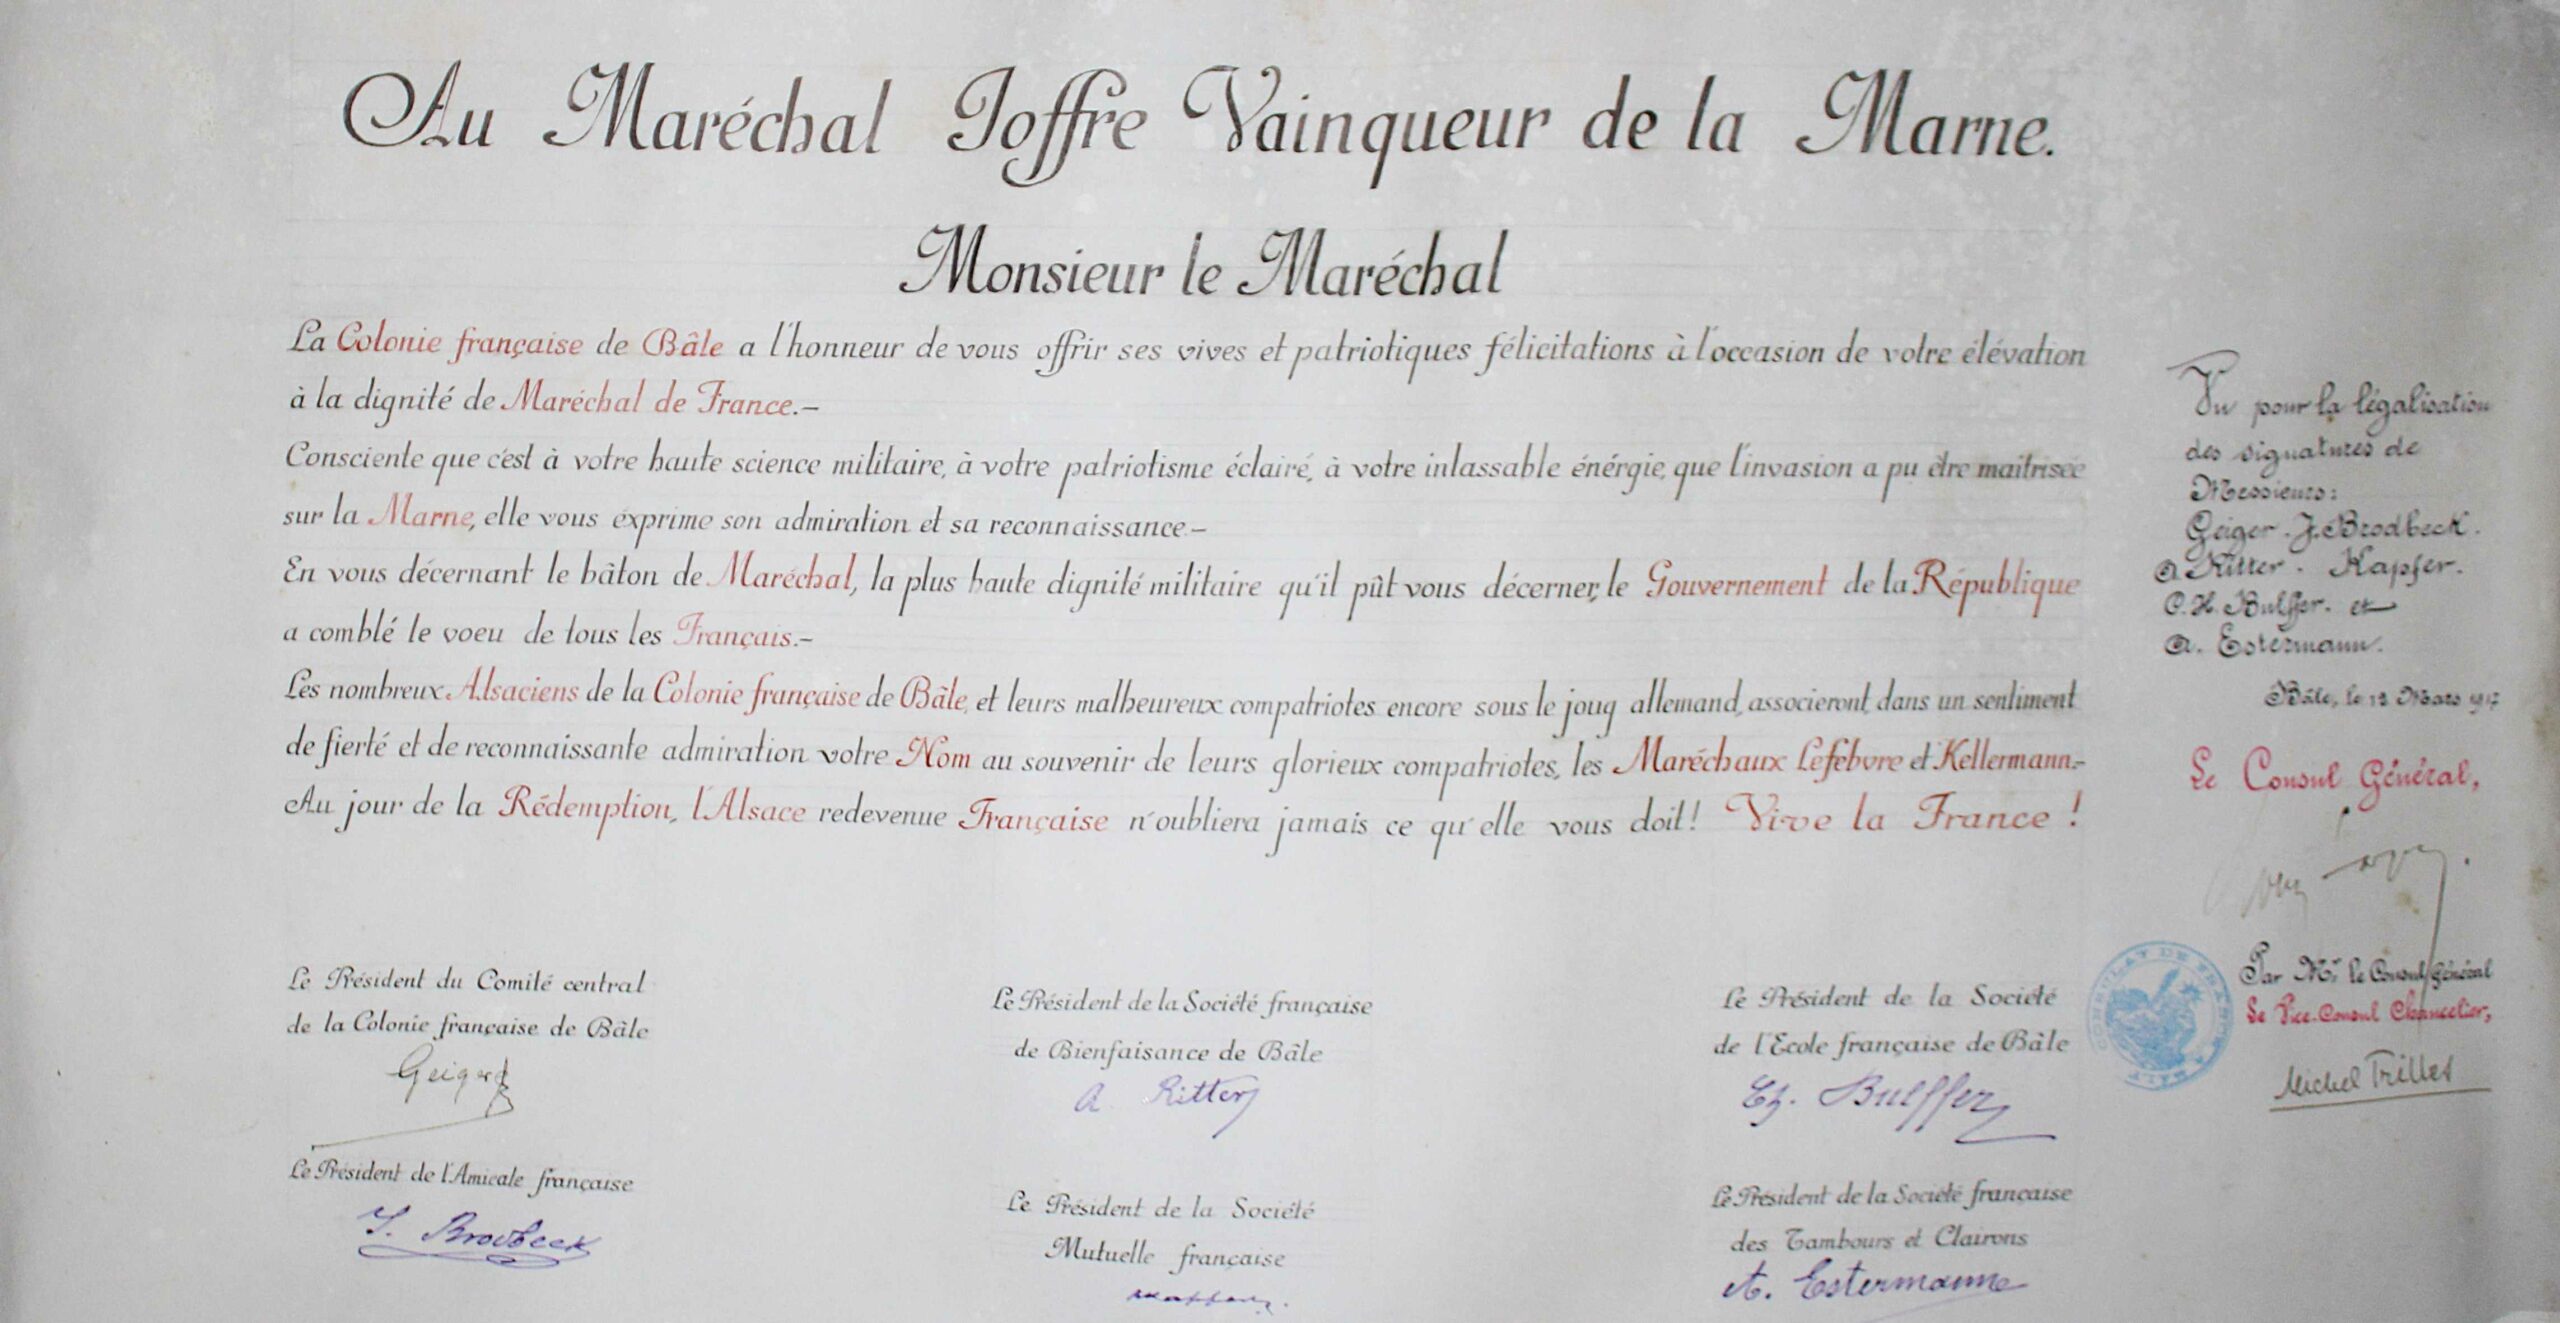 Au Maréchal Joffre Vainqueur de la Marne.
Monsieur le Maréchal
La Colonie française de Bâle a l'honneur de vous offrir ses vives et patriotiques félicitations à l'occasion de votre élévation
à la dignité de Maréchal de France.–
Consciente que c'est à votre haute science militaire, à votre patriotisme éclairé, à votre inlassable énérgie, que l'invasion a pu être maîtrisée
sur la Marne, elle vous exprime son admiration et sa reconnaissance.–
En vous décernant le bâton de Maréchal, la plus haute dignité militaire qu'il pût vous décerner, le Gouvernement de la République
a comblé le voeu de tous les Français.–
Les nombreux Alsaciens de la Colonie française de Bâle, et leurs malheureux compatriotes encore sous le joug allemand, associeront, dans un sentiment
de fierté et de reconnaissante admiration votre Nom au souvenir de leurs glorieux compatriotes, les Maréchaux Lefebvre et Kellermann.–
Au jour de la Rédemption, l'Alsace redevenue Française n'oubliera jamais ce qu'elle vous doit! Vive la France !
Le Président du Comité central
de la Colonie française de Bâle
Geiger
Le Président de la Société française
de Bienfaisance de Bâle
A Ritter
Le Président de la Société
de l'Ecole française de Bâle
Ch. Bulffer
Le Président de l'Amicale française
J. Brodbeck
Le Président de la Société
Mutuelle française
Le Président de la Société française
des Tambours et Clairons
A. Estermann
Vu pour la légalisation
des signatures de
Messieurs:
Geiger. J. Brodbeck.
A Ritter. Kapfer.
C.H. Bulffer. et
A. Estermann.
Bâle, le 12 Mars 1917
Le Consul Général,
Par Mr. le Consul Général
Le Vice-Consul Chancelier,
Michel Trilles
CONSULAT DE FRANCE A BALE